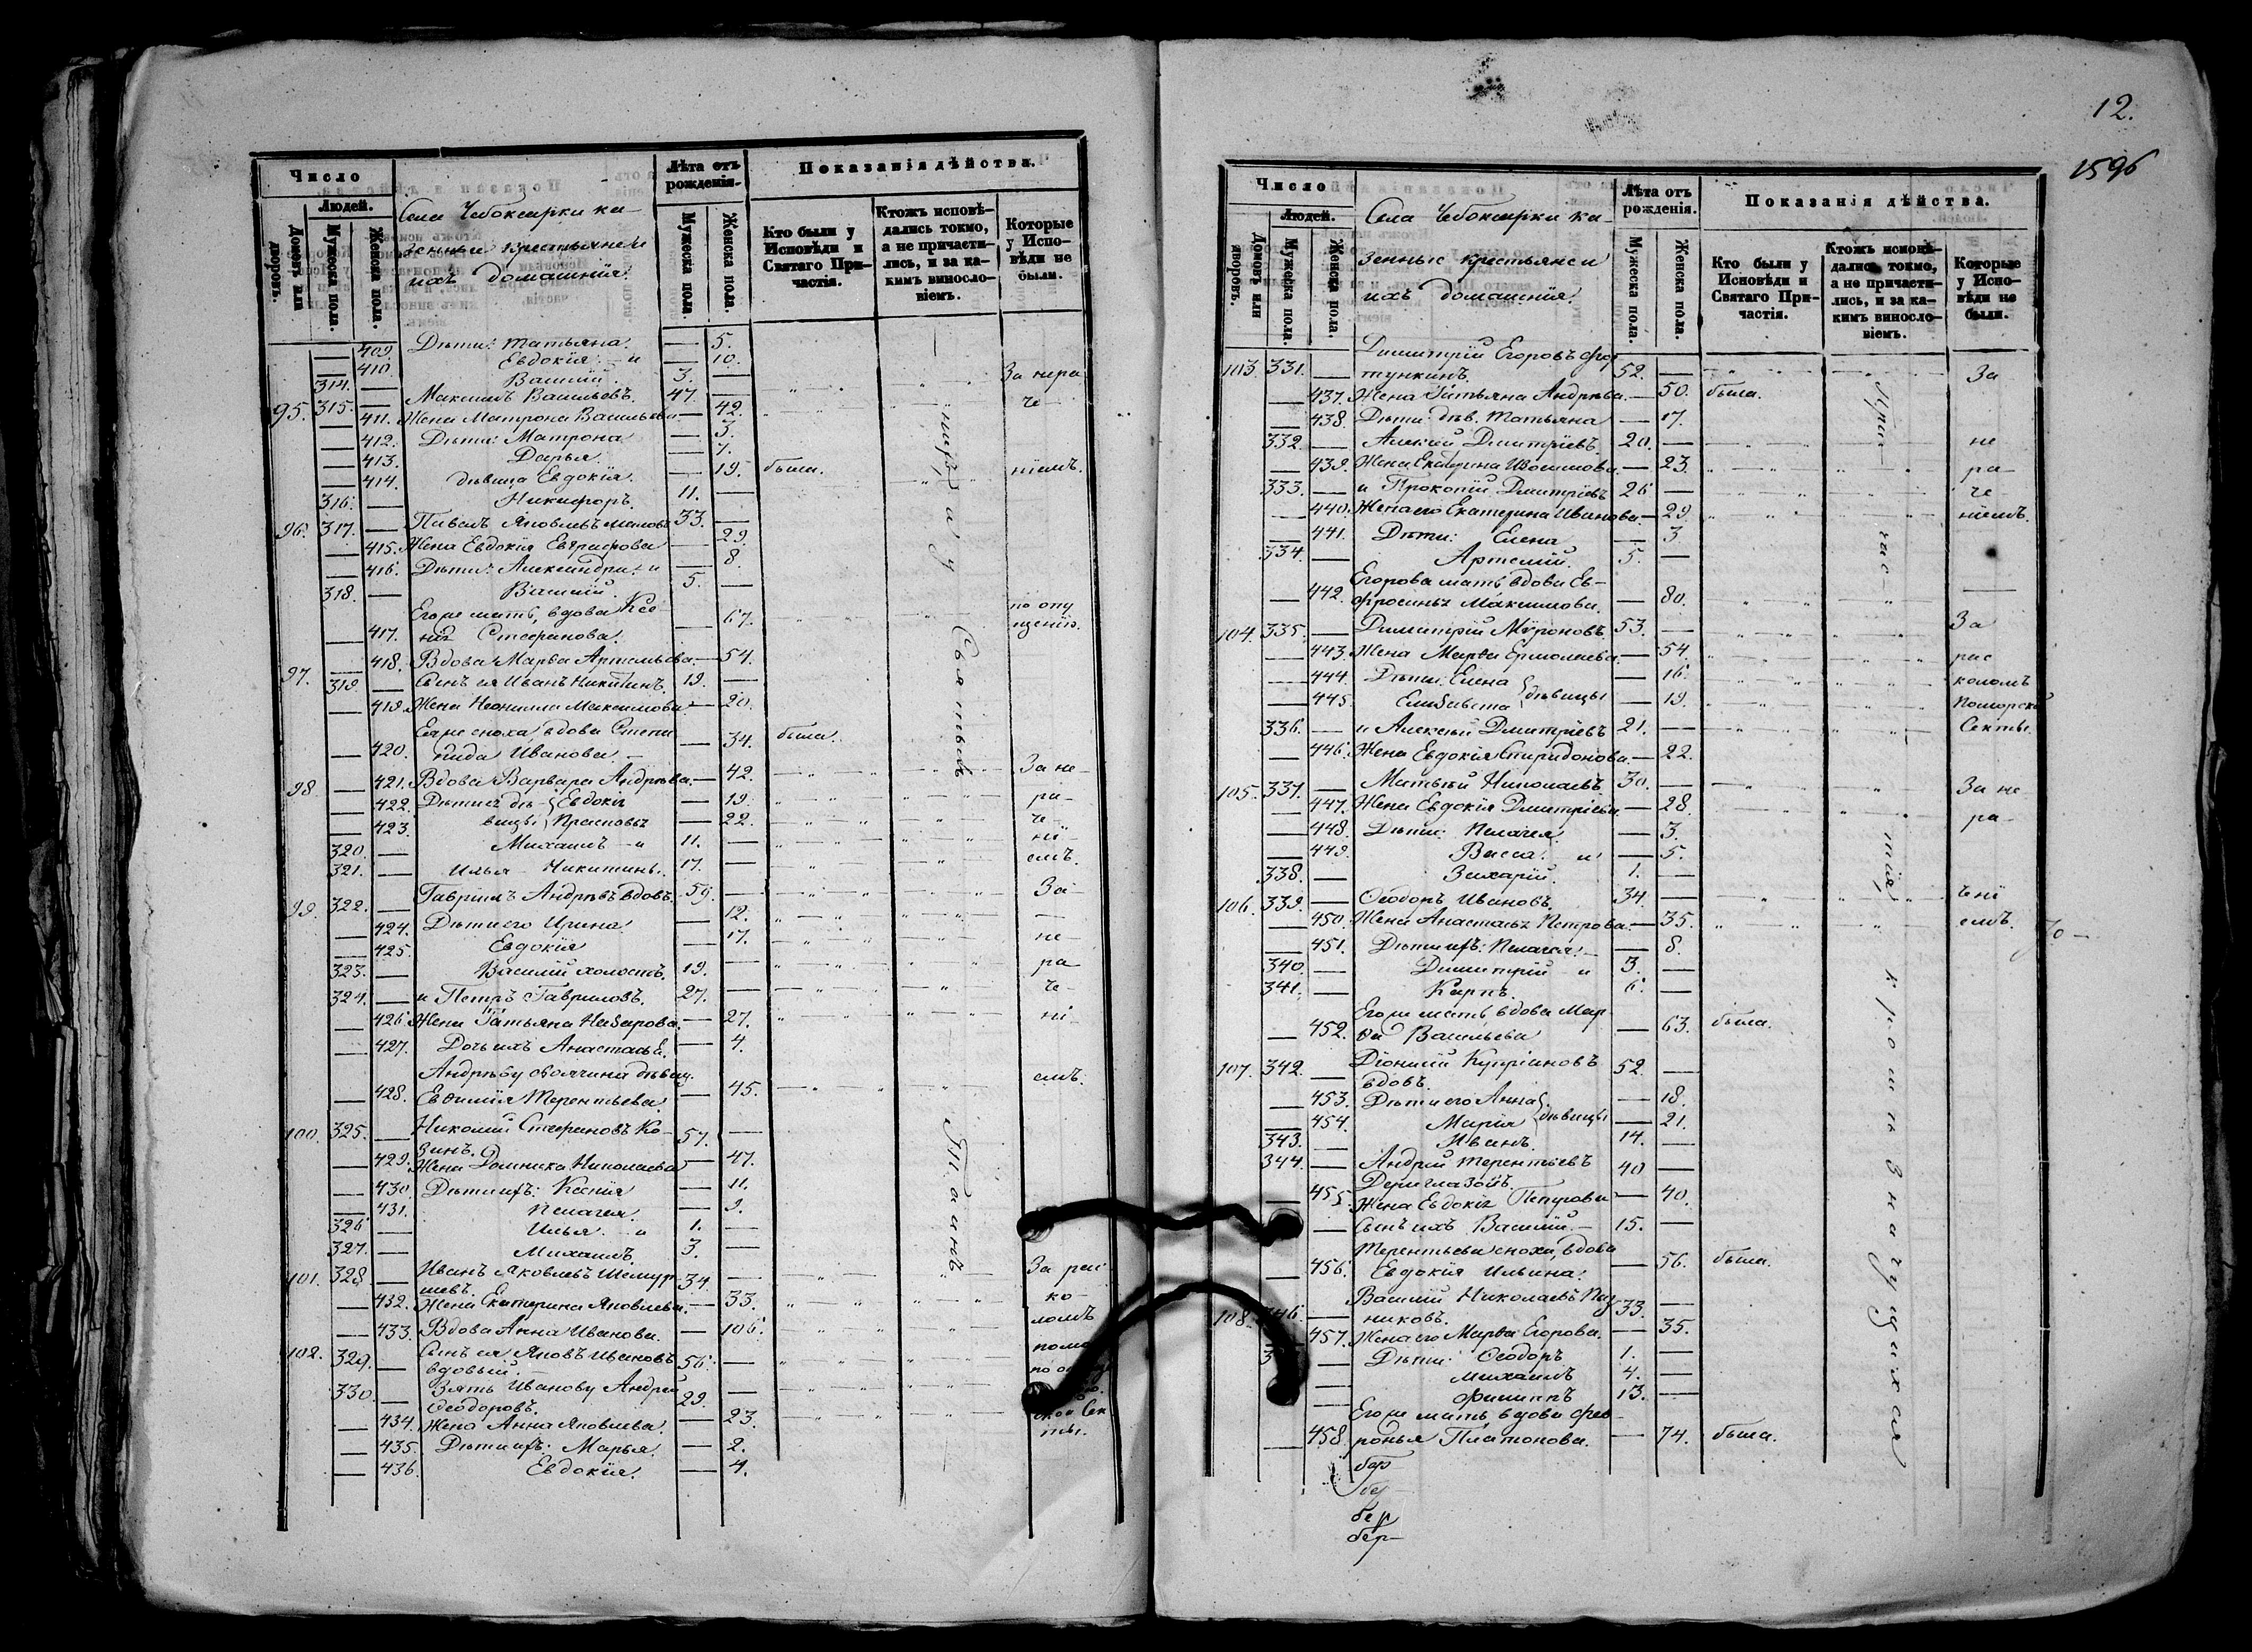 Число
Людей.
Домовъ или дворовъ.
Мужеска пола.
Женска пола.
Села Чебоксарки ка-
зенныи крестьяне и
ихъ домашнія.
Лѣта отъ рожденія.
Мужеска пола.
Женска пола.
Показанія дѣйства.
Кто были у Исповѣди и Святаго Причастія.
Ктожъ исповѣдались токмо, а не причастились, и за какимъ винословіемъ.
Которые у Исповѣди не были.
409. Дѣти: Татьяна — 5.
410. Евдокія и — 10.
314. — Василій. 3. — За нера
95. 315. — Максимъ Васильевъ. 47. — че-
411. Жена Матрона Васильева — 42.
412. Дѣти: Матрона — 3.
413. Дарья — 7.
414. дѣвица Евдокія. — 19. была. ніемъ.
316. — Никифоръ. 11. —
96. 317. — Павелъ Яковлевъ 33. —
415. Жена Евдокія Евграфова — 29.
416. Дѣти: Александра и — 8.
318. — Василій. 5. —
Егоже мать, вдова Ксе- по опу
417. нія Стефанова. — 67. щенію.
97. — 418. Вдова Марѳа Артемьева. — 54.
319. — Сынъ ея Иванъ Никитинъ. 19. —
419. Жена Неонилла Максимова. — 20.
Еяже сноха, вдова Степа
420. нида Иванова. — 34. была.
98. — 421. Вдова Варвара Андрѣева. — 42. За не-
422. Дѣти ея дѣ- Евдокія — 19. ра-
423. вицы Прасковья — 22. че-
320. — Михаилъ и 11. — ні
321. — Илья Никитины. 17. — емъ.
99. 322. — Гавріилъ Андрѣевъ вдовъ. 59. — За-
424. Дѣти его Ирина — 12.
425. Евдокія — 17. не-
323. — Василій холостъ. 19. — ра
324. — и Петръ Гавриловъ. 27. — че-
426. Жена Татьяна Назарова. — 27. ні-
427. Дочь ихъ Анастасія. — 4.
428. Евѳимія Терентьева. — 45. емъ.
100. 325. — Николай Стефановъ Ко- 57. —
зинъ.
429. Жена Домника Николаева — 47.
430. Дѣти ихъ: Ксенія — 11.
431. Пелагея. — 9.
326. — Илья и 1. —
327. — Михаилъ. 3. —
101. 328. — Иванъ Яковлевъ Шемур 34. — За рас
шевъ.
432. Жена Екатерина Яковлева. — 33. ко-
433. Вдова Анна Иванова. — 106. ломъ
102. 329. — Сынъ ея Яковъ Ивановъ 56. —
вдовый.
330. — Зять Иванову Андрей 29. —
Ѳеодоровъ.
434. Жена Анна Яковлева. — 23. ской Сек
435. Дѣти ихъ: Марья. — 2. ты.
436. Евдокія. — 4.
Святыхъ
Таинъ.
12.
1596
Число
Людей.
Домовъ или дворовъ.
Мужеска пола.
Женска пола.
Села Чебоксарки ка-
зенные крестьяне и
ихъ домашнія.
Лѣта отъ рожденія.
Мужеска пола.
Женска пола.
Показанія дѣйства.
Кто были у Исповѣди и Святаго Причастія.
Ктожъ исповѣдались токмо, а не причастились, и за какимъ винословіемъ.
Которые у Исповѣди не были.
Димитрій Егоровъ Фор
103. 331. — тункинъ. 52. — За
437. Жена Татьяна Андрѣева. — 50. была.
438. Дѣти: дѣв. Татьяна — 17.
332. — Алексій Дмитріевъ. 20. — не
439. Жена Екатерина — 23. ра-
333. — и Прокопій Дмитріевъ 26 — че-
440. Жена его Екатерина Иванова. — 29. ніемъ.
441. Дѣти: Елена — 3
334. — Артемій. 5. —
Егорова мать вдова Ев-
442. фросинья Максимова. — 80.
104. 335. — Димитрій Мѵроновъ. 53. — За
443. Жена Марѳа Ермолаева. — 54. рас
444. Дѣти: Елена дѣвицы — 16. коломъ
445. Елизавета — 19. Поморской
336. — и Алексій Дмитріевъ 21. — Секты.
446. Жена Евдокія Спиридонова. — 22.
105. 337. — Матвѣй Николаевъ. 30. — За не
447. Жена Евдокія Дмитріева. — 28. ра-
448. Дѣти: Пелагея — 3.
449. Васса. и — 5.
338. — Захарій. 1. —
106. 339. — Ѳеодоръ Ивановъ. 34. — чені
450. Жена Анастасья Петрова. — 35. емъ.
451. Дѣти ихъ: Пелагея. — 8.
340. — Димитрій и 3. —
341. — Карпъ. 6. —
Егоже мать вдова Мар
452. ѳа Васильева — 63. была.
107. 342. — Діонисій Купріановъ 52. —
вдовъ.
453. Дѣти его Анна — 18.
454. Марія дѣвицы — 21.
343. — Иванъ. 14. —
344. — Андрей Терентьевъ 40 —
Дериглазовъ.
455. Жена Евдокія Петрова — 40.
— Сынъ ихъ Василій. — 15. —
Терентьева сноха, вдова
456. Евдокія Ильина. — 56. была.
Василій Николаевъ Паз
108. 346. — никовъ. 33. —
457. Жена его Марѳа Егорова. — 35.
— Дѣти: Ѳеодоръ 1. —
— Михаилъ 4. —
— Филиппъ 13. —
Егоже мать, вдова Фев
458. ронья Платонова. — 74. была.
При-
час-
тія,
кромѣ значущихся
бер
бер-